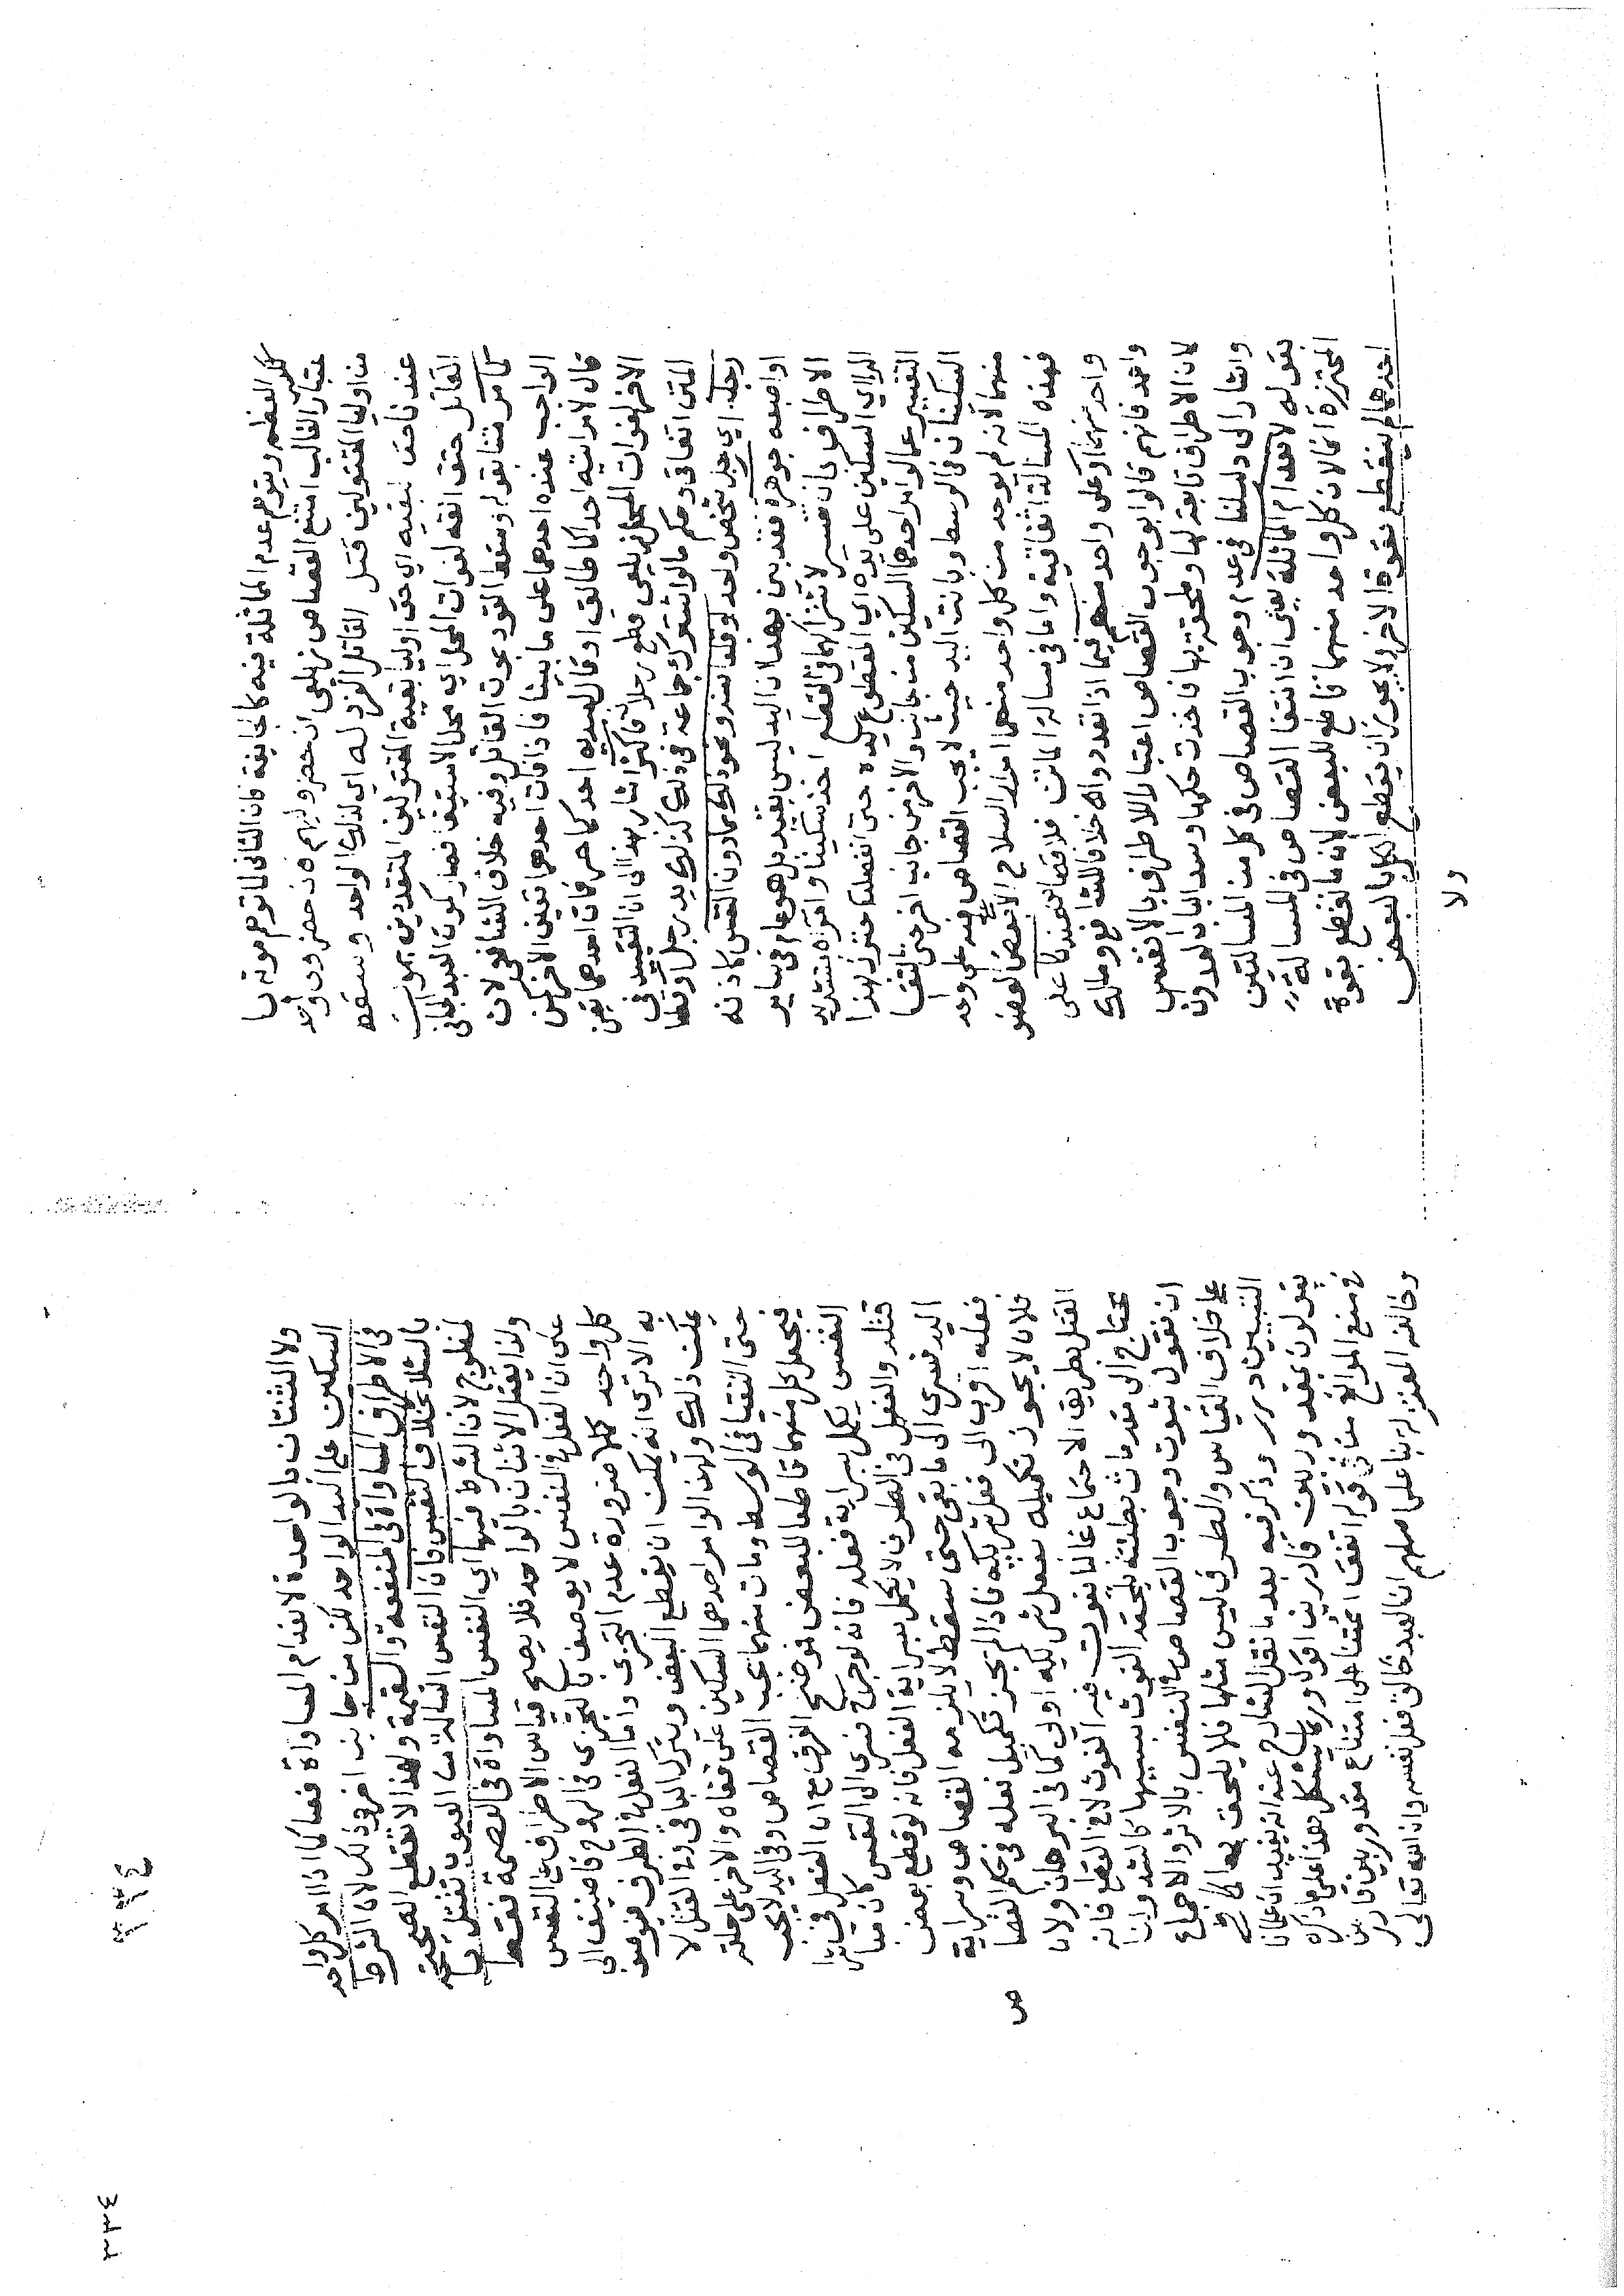 ككسر العظم ويتوهم عدم المماثلة فيه كالجايفة فان الثاني لما توهم موته بها
عتبار الغالب امتنع القصاص نهاية ان حضر وليهم ان حضر ولي واحد
من اوليا المقتولين قتل القاتل الفرد له اي لذلك الواحد وسقط
عندنا حق بقيته اي حق اوليا بقية المقتولين المتعددين بموت
القاتل حتف انفه لفوات المحل اي محل الاستيفا فصار كموت العبد الجاني
كما مر متنا بقوله وسقط القود بموت القاتل وفيه خلاف الشافعي لان
الواجب عنده احدهما على ما بينا فاذا فات احدهما تعين الاخر كمن
قال لامراتيه احداكما طالق او قال لعبديه احدكما حر فمات احدهما تعين
الاخر لفوات المحل قطع رجلان فاكثر اشار بهذا الى ان التقييد في
المتن اتفاقي وحكم ما لو اشترك جماعة في ذلك كذلك يد رجل او قطعا
رجله اي رجل شخص واحد او قلعا سنه ونحو ذلك مما دون النفس كاذنه
او اصبعه جوهرة فقد بين بهذا ان اليد ليس بقيد بل هو عام في ساير
الاطراف فان تفسير لاشتراكهما في القطع اخذ سكينا وامراه بتشديد
الراي السكين على يده اي المقطوع يده حتى انفصلت احترز بهذا
التفسير عما لو امر احدهما السكين من جانب والاخر من جانب اخر حتى التقا
السكينان في الوسط وبانت اليد حيث لا يجب القصاص فيه على واحد
منهما لانه لم يوجد من كل واحد منهما امرار السلاح الا على بعض العضو
فهذه المسالة اتفاقية واما في مسالة الماتن فلا قصاص عندنا على
واحد منهما او على واحد منهم فيما اذا تعددوا خلافا للشافعي ومالك
واحمد فانهم قالوا بوجوب القصاص اعتبارا للاطراف بالانفس
لان الاطراف تابعة لها وملحقة بها فاخذت حكمها وسدا لباب العدوان
واشار الى دليلنا في عدم وجوب القصاص في كل من المسالتين
بقوله لانعدام المماثلة يعني ان انتفا القصاص في المسالة
المحترزة انما لان كل واحد منهما قاطع للبعض لان ما انقطع بقوة
احدهما لم ينقطع بقوة الاخر ولا يجوز ان يقطع الكل بالبعض
ولا
٣٣٤
ولا الثنتان بالواحدة لانعدام المساواة فصار كما اذا امر كل واحد
السكين على اليد الواحد لكن من جانب اخر وذلك لان الشرط
في الاطراف المساواة في المنفعة والقيمة ولهذا لا تقطع الصحيحة
بالشلا بخلاف النفس فان النفس السالمة من العيوب تقتل بها
لمفلوج لان الشرط فيها اي النفس المساواة في العصمة فقط
ولذا يقتل الاثنان بالواحد فلا يصح قياس الاطراف على النفس
على ان الفعل في النفس لا يوصف بالتجزي في الروح فاضيف الى
كل واحد كملا ضرورة عدم التجزي واما الفعل في الطرف فيوصف
به الا ترى انه يمكن ان يقطع البعض ويترك الباقي وفي القتل لا
يمكن ذلك ولهذا لو امر احدهما السكين على قفاه والاخر على حلقه
حتى التقيا في الوسط ومات منهما يجب القصاص وفي اليد لا يجب
فيجعل كل منهما قاطعا للبعض فوضح الفرق مع ان الفعل في باب
النفس يكمل بسراية فعله فانه لو جرح فسرى الى النفس كان قصاص
قتله والفعل في الطرف لا يكمل بسراية الفعل فانه لو قطع بعض
اليد فسرى الى ما بقي حتى سقط لا يلزمه القصاص وسراية
فعله اقرب الى فعل شريكه فاذا لم يجز تكميل فعله في حكم القصا
ص
فلان لا يجوز تكميله بفعل شريكه اولى كما في البرهان ولان
القتل بطريق الاجتماع غالبا بفوت فيه الغوث لا في القطع فانه
يحتاج الى مقدمات بطيئة فيلحقه الغوث بسببها كالشد ولنا
ان نقول ثبوت وجوب القصاص في النفس بالاثر والاجماع
على خلاف القياس والطرف ليس مثلها فلا يلحق بها كما في
التبيين درر وذكر فيه بعد ما نقل الشارح عنه انه يفيد ان علمانا
يقولون بمقدور بين قادرين اقول وربما يشكل هذا على ما ذكره
في منع الموانع من قولهم اتفق امتنا على امتناع مقدور بين قادرين
وخالفه المعتزلة بنا على اصلهم ان العبد خالق فعل نفسه وان الله تعالى
٣٣٤